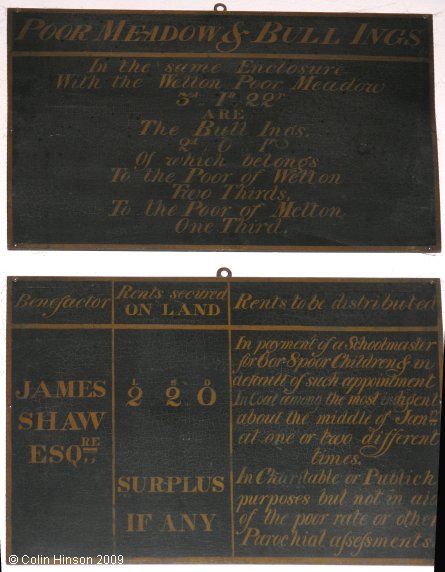 POOR MEADOW & BULL INGS
In the same Enclosure
With the Welton Poor Meadow
3ᵃ 1ʳ 22ᵖ
ARE
The Bull Ings.
2ᵃ 0 1ᵖ
Of which belongs
To the Poor of Welton
Two Thirds,
To the Poor of Melton
One Third.
Benefactor
Rents secured
ON LAND
Rents to be distributed
JAMES
SHAW
ESQRE
L S D
2 2 0
SURPLUS
IF ANY
In payment of a Schoolmaster
for 6 or 8 poor Children & in
default of such appointment
In Coal among the most indigent
about the middle of Janʸ
at one or two different
times.
In Charitable or Publick
purposes but not in aid
of the poor rate or other
Parochial aſseſsments.
© Colin Hinson 2009